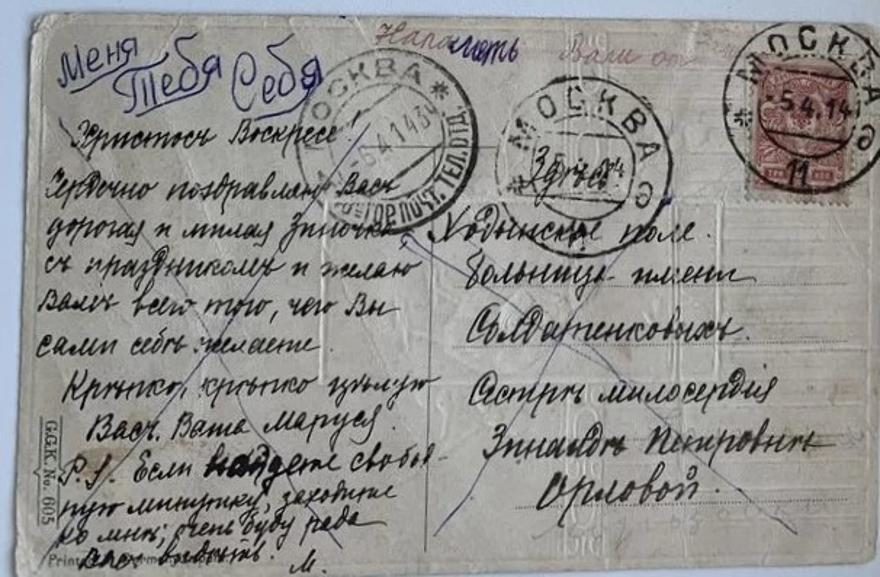 Меня
Тебя Себя
На память Вали от
МОСКВА
-6.4.14
ГОР. ПОЧТ. ТЕЛ. ОТД.
МОСКВА
МОСКВА
-5.4.14
11
Христосъ Воскресе!
Сердечно поздравляю Васъ
дорогая и милая Зиночка
съ праздникомъ и желаю
Вамъ всего того, чего Вы
сами себѣ желаете.
Крѣпко, крѣпко цѣлую
Васъ. Ваша Маруся.
P.S. Если найдете свобод-
ную минутку, заходите
ко мнѣ; очень буду рада
Васъ видѣть.
М.
Здѣсь
Ходынское поле.
Больница имени
Солдатенковыхъ.
Сестрѣ милосердія
Зинаидѣ Петровнѣ
Орловой.
G.G.K. No. 605